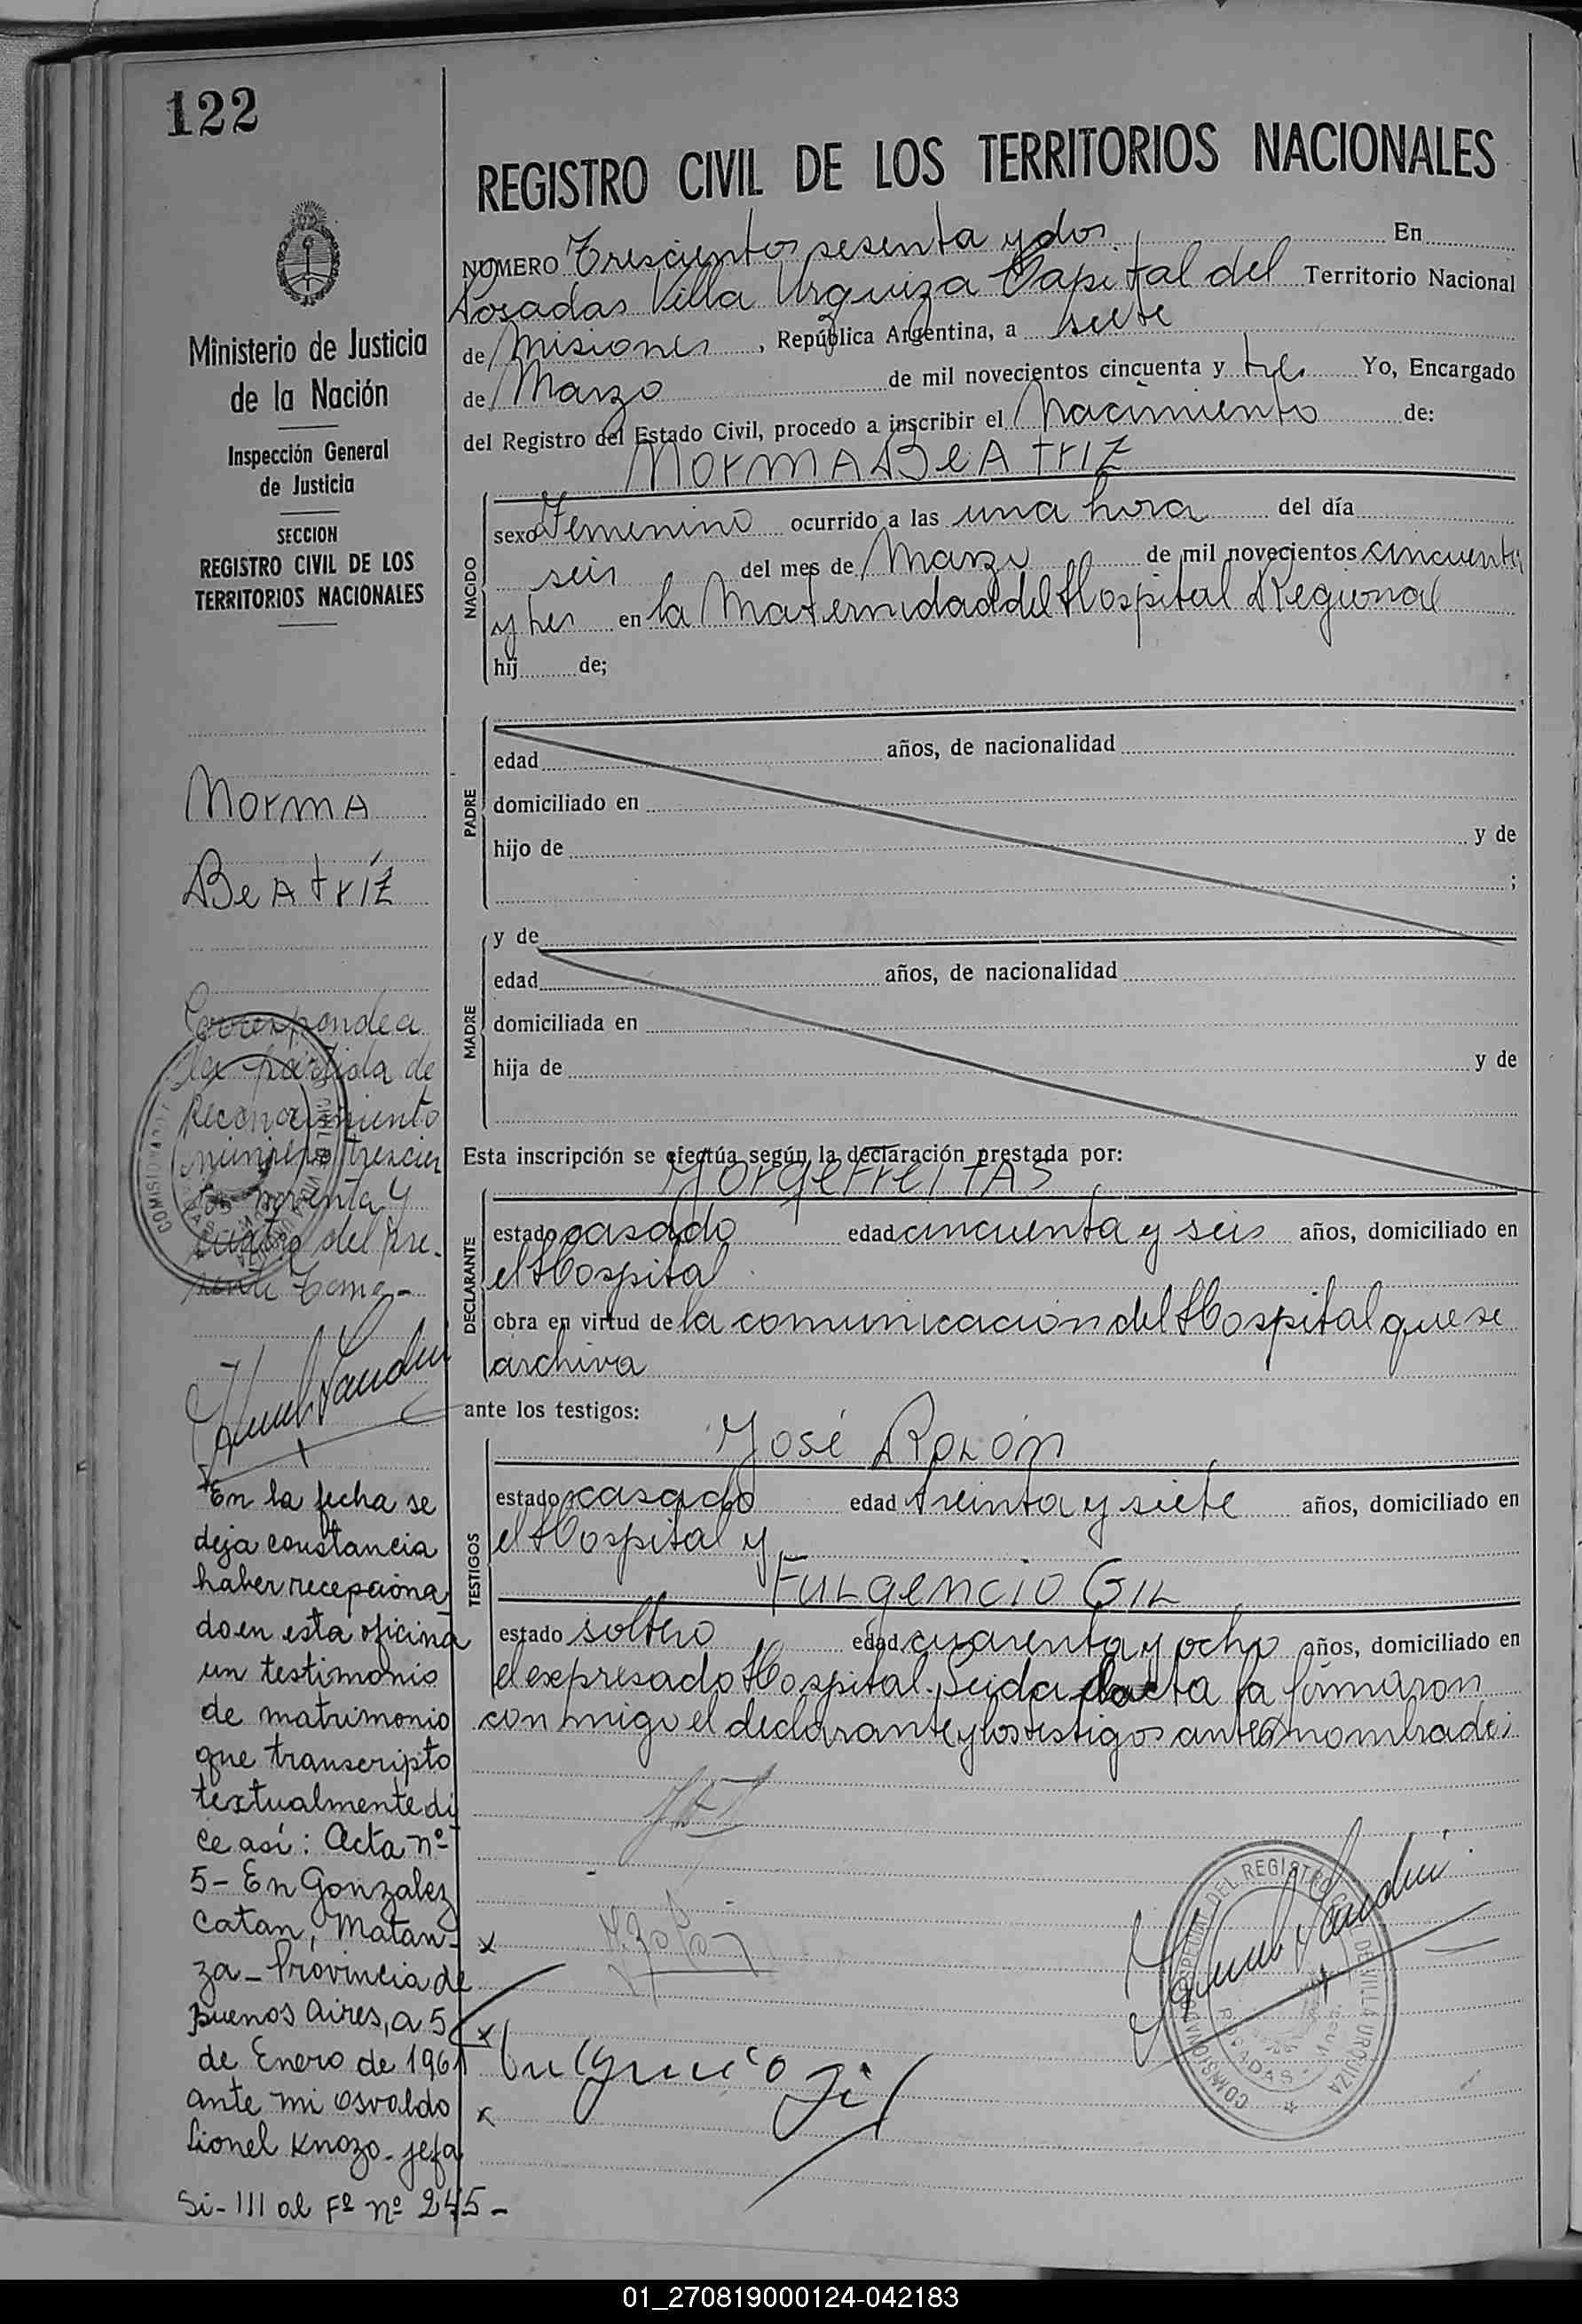 122
Ministerio de Justicia
de la Nación
Inspección General
de Justicia
SECCION
REGISTRO CIVIL DE LOS
TERRITORIOS NACIONALES
Norma
Beatríz
Corresponde a
la partida de
Reconocimiento
número trescien
tos noventa y
cuatro del pre-
sente tomo-
En la fecha se
deja constancia
haber recepciona
do en esta oficina
un testimonio
de matrimonio
que transcripto
textualmente di
ce asi: Acta nº
5- En Gonzalez
Catan, Matan-
za- Provincia de
Buenos Aires, a 5
de Enero de 1961
ante mi Osvaldo
Lionel Knozo- jefa
Si- III al Fº nº 245-
REGISTRO CIVIL DE LOS TERRITORIOS NACIONALES
NUMERO Trescientos sesenta y dos En
Posadas Villa Urquiza Capital del Territorio Nacional
de Misiones, República Argentina, a siete
de Marzo de mil novecientos cincuenta y tres Yo, Encargado
del Registro del Estado Civil, procedo a inscribir el Nacimiento de:
Norma Beatriz
NACIDO
sexo Femenino ocurrido a las una hora del día
seis del mes de Marzo de mil novecientos cincuenta
y tres en la Maternidad del Hospital Regional
hij de;
PADRE
edad años, de nacionalidad
domiciliado en
hijo de y de
;
MADRE
y de
edad años, de nacionalidad
domiciliada en
hija de y de
Esta inscripción se efectúa según la declaración prestada por:
Jorge Freitas
DECLARANTE
estado casado edad cincuenta y seis años, domiciliado en
el Hospital
obra en virtud de la comunicación del Hospital que se
archiva
ante los testigos:
José Rolón
TESTIGOS
estado casado edad treinta y siete años, domiciliado en
el Hospital y
Fulgencio Gil
estado soltero edad cuarenta y ocho años, domiciliado en
el expresado Hospital. Leida el acta la firmaron
conmigo el declarante y los testigos antes nombrados
Fulgencio Gil
COMISION AD HONOREM DEL REGISTRO CIVIL DE VILLA URQUIZA
POSADAS - Mnes.
01_270819000124-042183